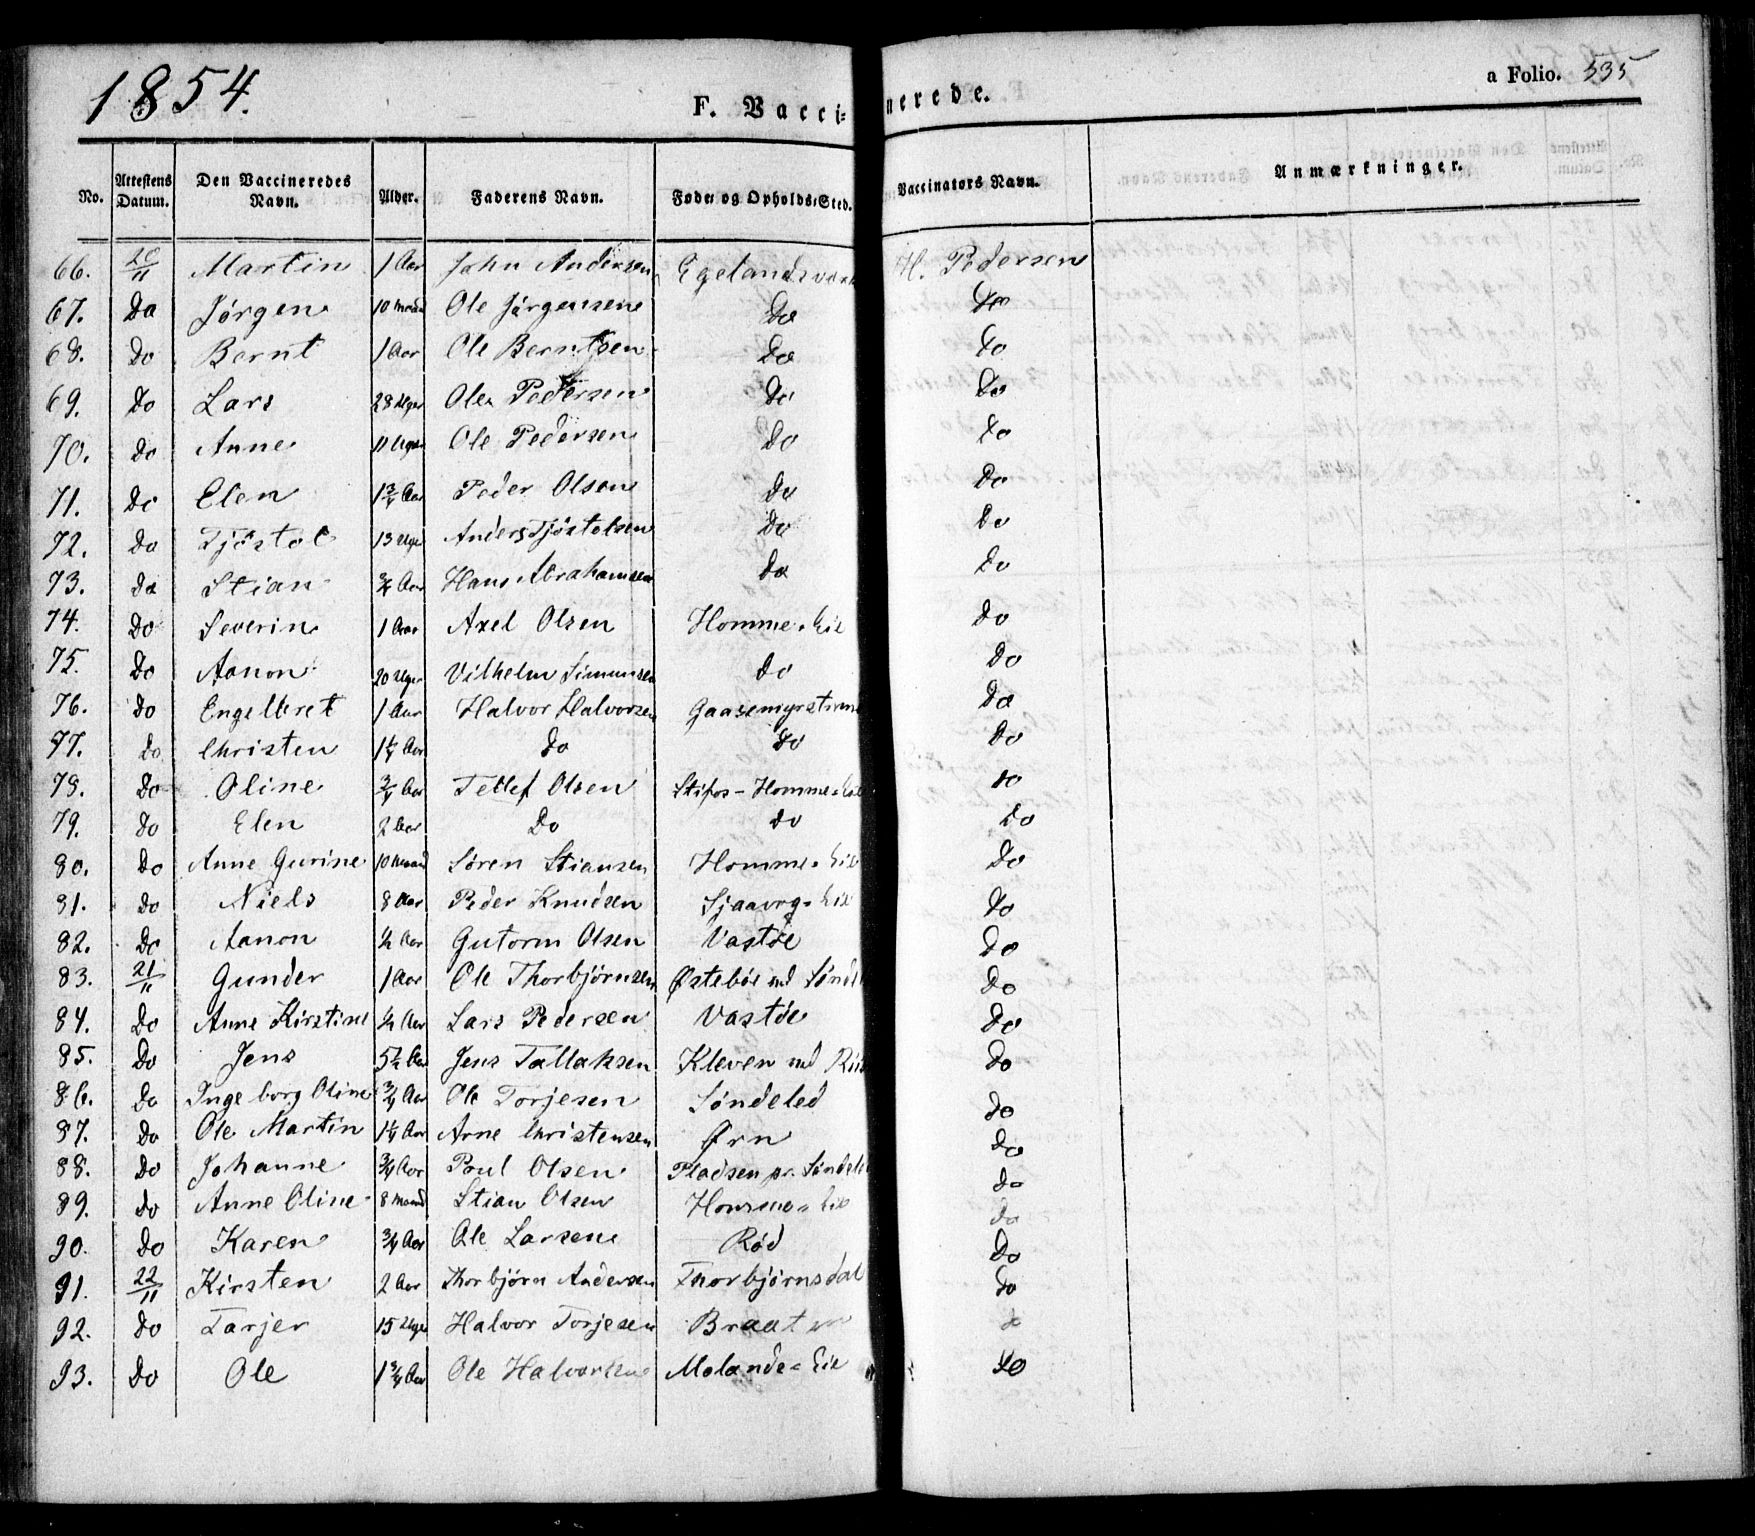 1854.
F. Vaccinerede.
a Folio. 535
No. | Attestens Datum. | Den Vaccineredes Navn. | Alder. | Faderens Navn. | Føde- og Opholds-Sted. | Vaccinators Navn. | Anmærkninger.
66. | 20/11 | Martin | 1 Aar | John Andersen | Egelandsværk | H. Pedersen
67. | Do | Jørgen | 10 Maaned | Ole Jørgensen | Do | Do
68. | Do | Bernt | 1 Aar | Ole Berntsen | Do | Do
69. | Do | Lars | 28 Uger | Ole Pedersen | Do | Do
70. | Do | Anne | 11 Uger | Ole Pedersen | Do | Do
71. | Do | Elen | Aar | Peder Olsen | Do | Do
72. | Do | Tjöstol | 13 Uger | Anders Tjöstolsen | Do | Do
73. | Do | Stian | 3/4 Aar | Hans Abrahamsen | Do | Do
74. | Do | Severin | 1 Aar | Axel Olsen | Homme-Eie | Do
75. | Do | Aanon | 20 Uger | Vilhelm Simunsen | Do | Do
76. | Do | Engelbret | 1 Aar | Halvor Halvorsen | | Do
77. | Do | Christen | 1 1/4 Aar | Do | Do | Do
78. | Do | Oline | 3/4 Aar | Tellef Olsen | Stifos-Homme-Eie | Do
79. | Do | Elen | 2 Aar | Do | Do | Do
80. | Do | Anne Gurine | 10 Maaned | Søren Stiansen | Homme-Eie | Do
81. | Do | Niels | 8 Aar | Peder Knudsen | | Do
82. | Do | Aanon | 1/2 Aar | Gutorm Olsen | Vastøe | Do
83. | 21/11 | Gunder | 1 Aar | Ole Thorbjørnsen | Østebøe ved Sønde | Do
84. | Do | Anne Kirstine | Aar | Lars Pedersen | Vastøe | Do
85. | Do | Jens | 5 1/2 Aar | Jens Tallaksen | Kleven ved | Do
86. | Do | Ingeborg Oline | 3/4 Aar | Ole Torjesen | Søndeled | Do
87. | Do | Ole Martin | 1 1/4 Aar | Arne Christensen | Ørn | Do
88. | Do | Johanne | 3/4 Aar | Poul Olsen | Pladsen pr. Søndel | Do
89. | Do | Anne Oline | 8 Maaned | Stian Olsen | Homme-Eie | Do
90. | Do | Karen | 3/4 Aar | Ole Larsen | Rød | Do
91. | 22/11 | Kirsten | 2 Aar | Thorbjørn Andersen | Thorbjørnsdal | Do
92. | Do | Tarjer | 15 Uger | Halvor Torjesen | Braaten | Do
93. | Do | Ole | 1 3/4 Aar | Ole Halvorsen | Molands-Eie | Do